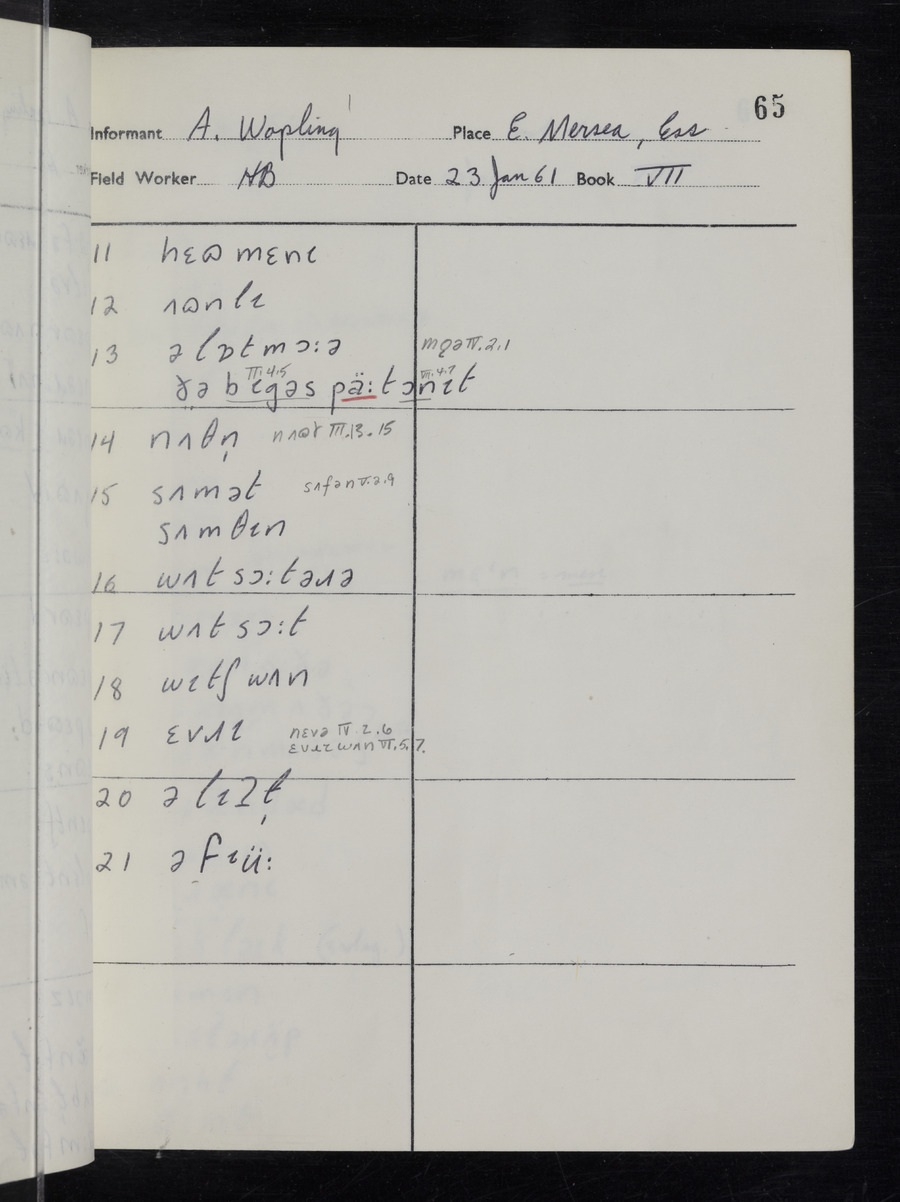 65
Informant A. Wopling Place E. Mersea, Ess
Field Worker HB Date 23 Jan 61 Book VII
11 hɛɷ mɛnɩ
12 ɹɷnlɩ
13 ə lɒt mɔ:ə mɔ̨ə IV.2.1
ðə bɩgəs pä:t ənɩt III.4.5 VII.4.7
14 nʌθn̩ nʌɷt III.13.15
15 sʌmət sʌfən V.2.9
sʌmθɩn
16 wʌt sɔ:təɹə
17 wʌt sɔ:t
18 wɩtʃ wʌn
19 ɛvɹɩ nɛvə IV.2.6
ɛvɹɩ wʌn VI.5.7.
20 ə lɩɪt̩
21 ə fɩü: